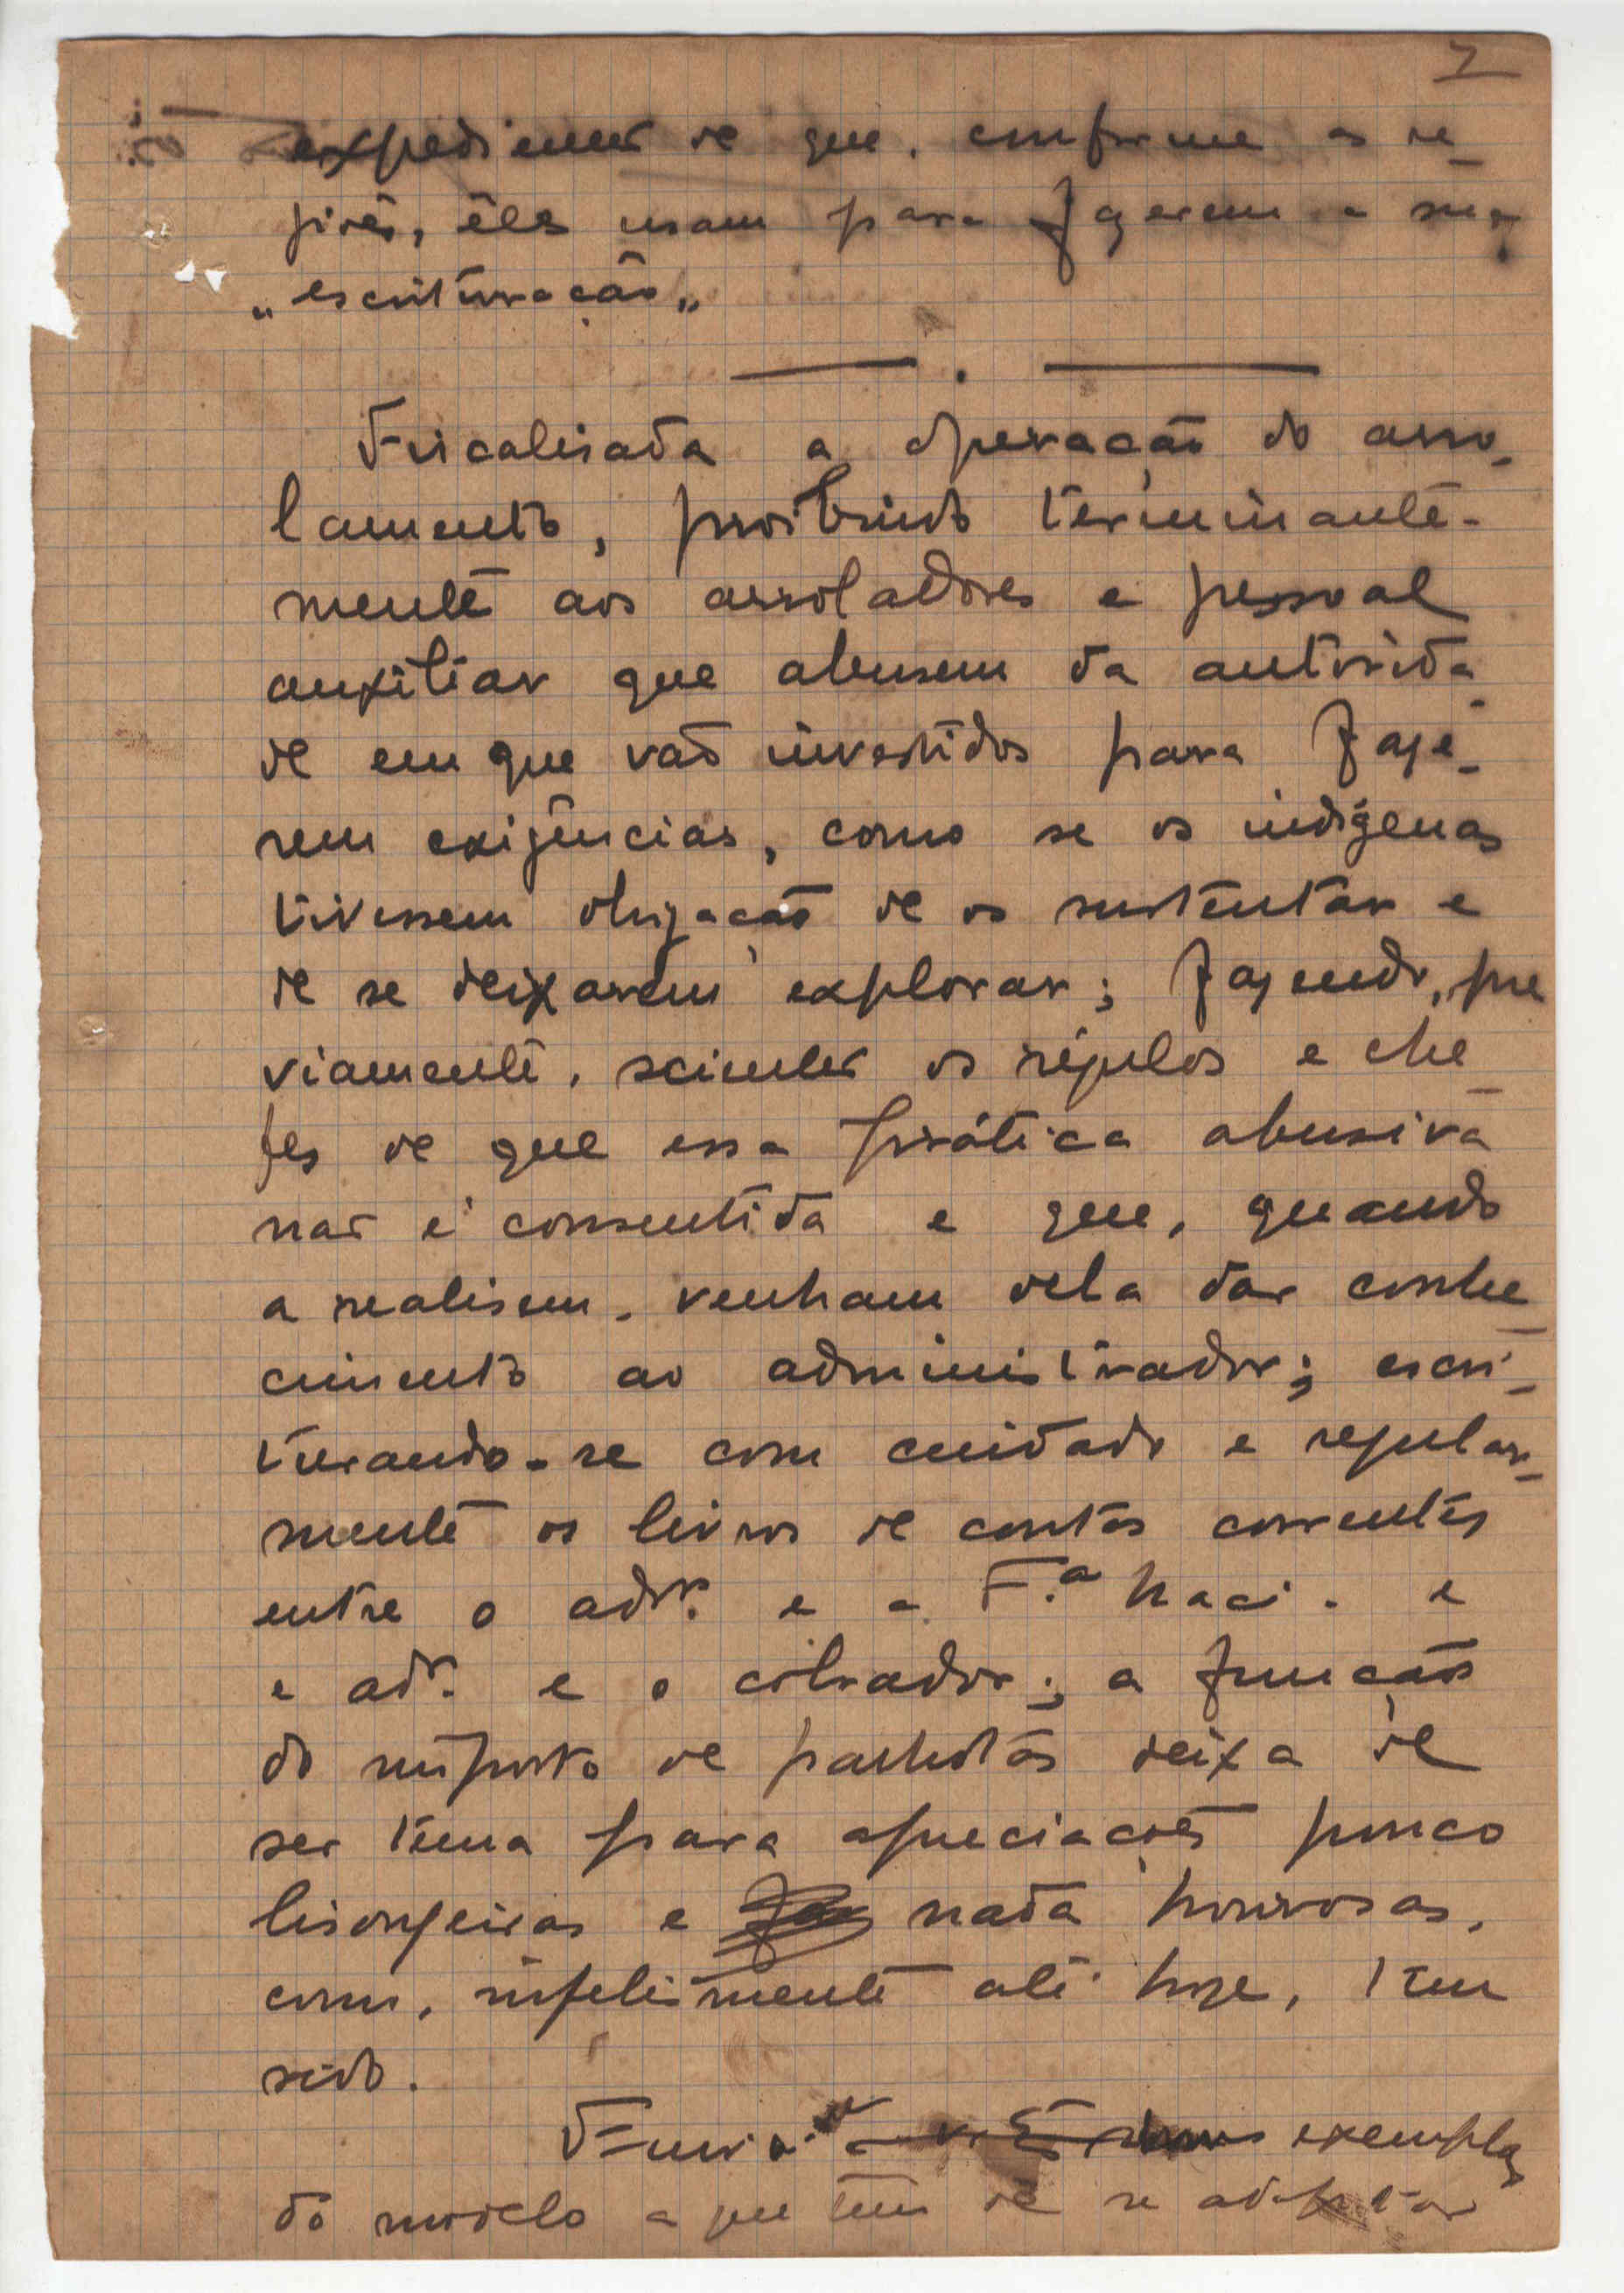 7
expedientes de que, conforme as re_
giões, êles usam para fazerem a sua
"escrituração"
Fiscalisada a operação do arro_
lamento, proibindo terminante-
mente aos arroladores e pessoal
auxiliar que abusem da autorida_
de em que vão investidos para faze_
rem exigências, como se os indígenas
tivessem obrigação de os sustentar e
de se deixarem explorar; fazendo, pre
viamente, scientes os régulos e che_
fes de que essa prática abusiva
não é consentida e que, quando
a realisem, venham dela dar conhe_
cimento ao administrador; escri_
turando-se com cuidado e regular_
mente os livros de contas correntes
entre o adr. e a F.ª Naci. e
e adr. e o cobrador; a função
do imposto de palhotas deixa de
ser tema para apreciações pouco
lisongeiras e nada honrosas,
como, infelismente até hoje, tem
sido.
exemplar
do modelo a que tem de se adaptar